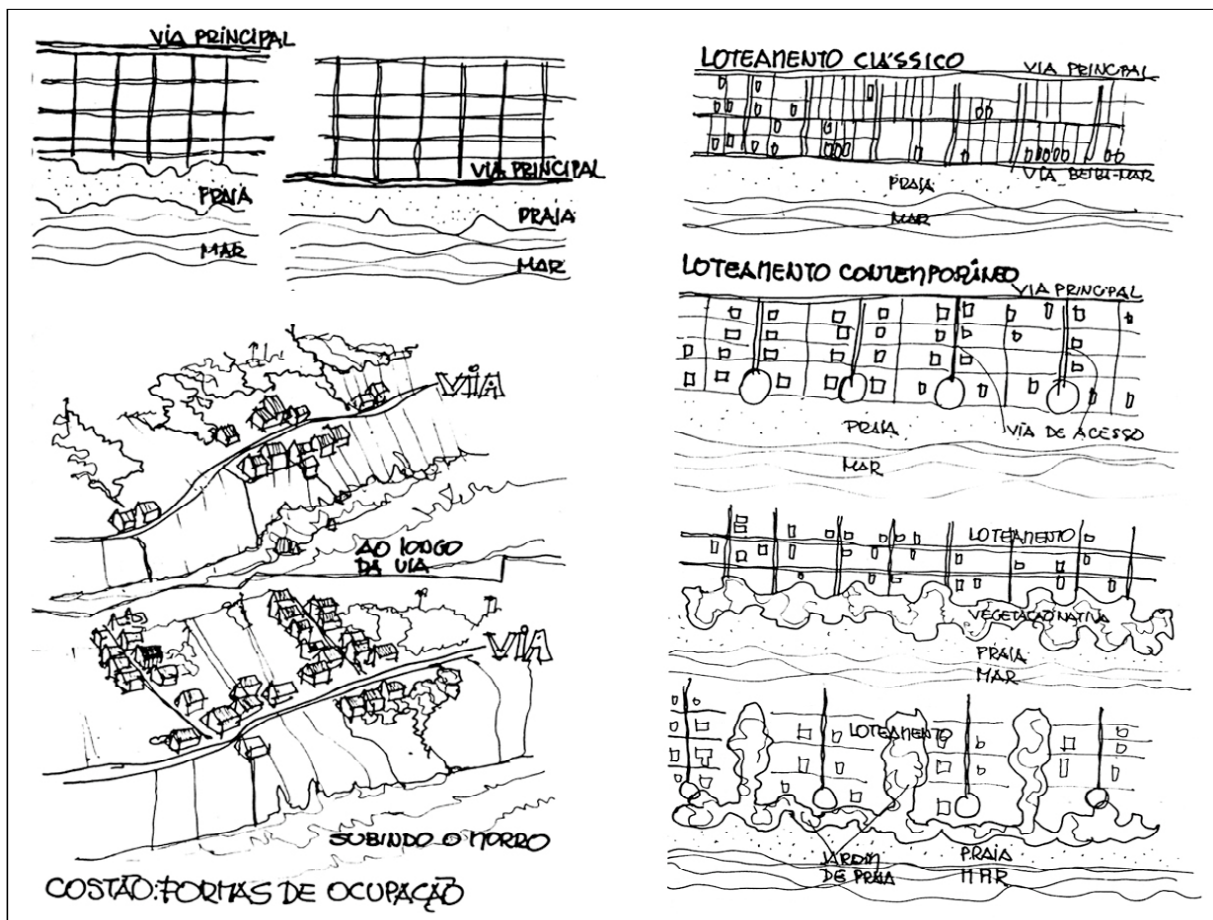 VIA PRINCIPAL
PRAIA
MAR
VIA PRINCIPAL
PRAIA
MAR
VIA
AO LONGO
DA VIA
VIA
SUBINDO O MORRO
COSTÃO: FORMAS DE OCUPAÇÃO
LOTEAMENTO CLÁSSICO
VIA PRINCIPAL
VIA BEIRA-MAR
PRAIA
MAR
LOTEAMENTO CONTEMPORÂNEO
VIA PRINCIPAL
PRAIA
VIA DE ACESSO
MAR
LOTEAMENTO
VEGETAÇÃO NATIVA
PRAIA
MAR
LOTEAMENTO
JARDIM
DE PRAIA
PRAIA
MAR